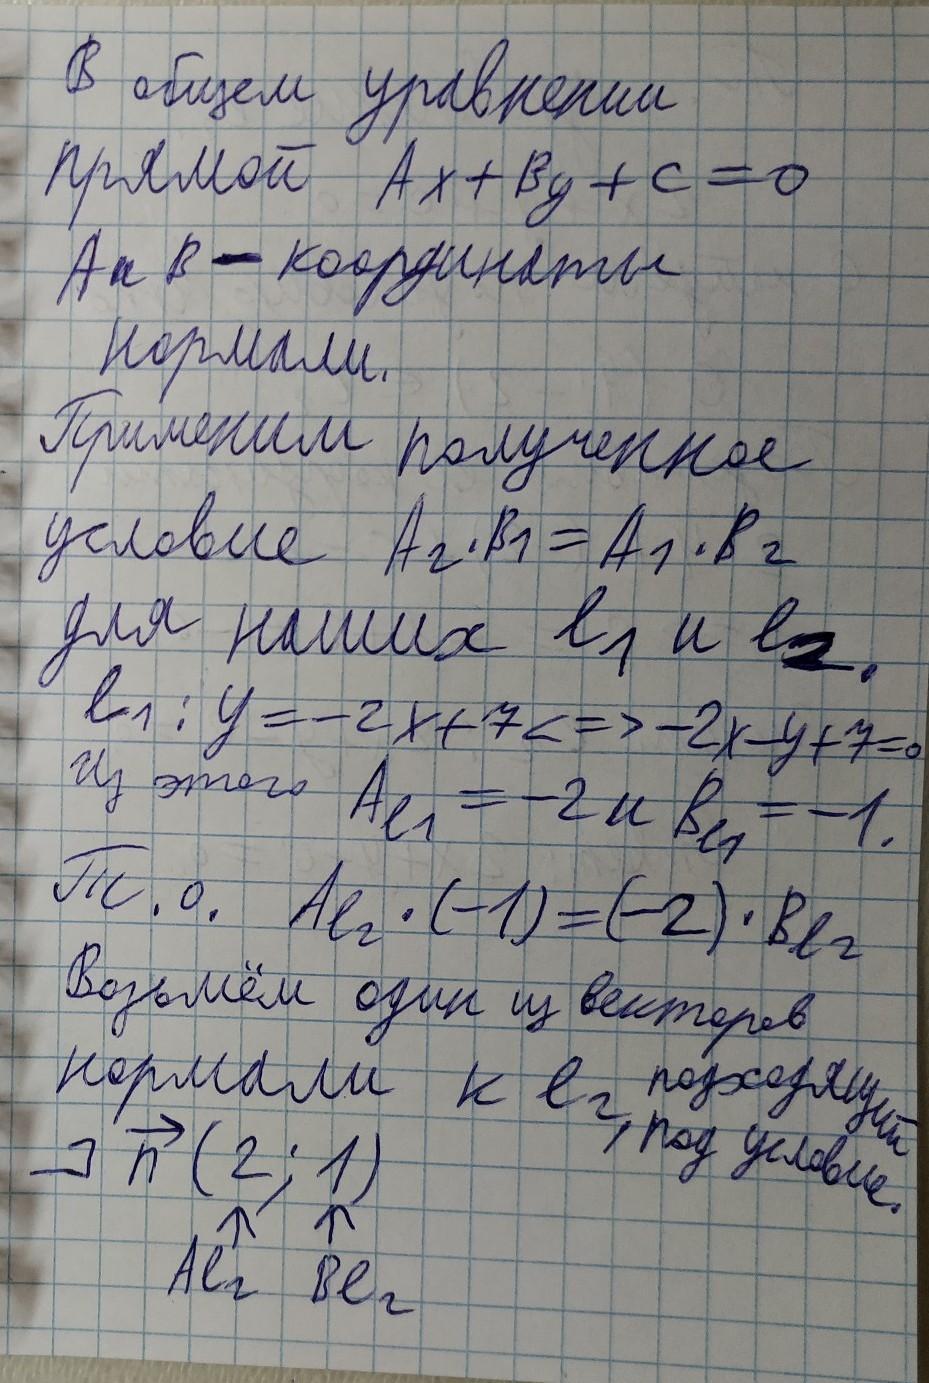 В общем уравнении
прямой Ax+By+C=0
A и B – координаты
нормали.
Применим полученное
условие A₂·B₁=A₁·B₂
для наших l₁ и l₂.
l₁: y=-2x+7<=>-2x-y+7=0
Из этого Al₁=-2 и Bl₁=-1.
Т.о. Al₂·(-1)=(-2)·Bl₂
Возьмём один из векторов
нормали к l₂, подходящий
под условие.
∃ n⃗ (2; 1)
↑ ↑
Al₂ Bl₂